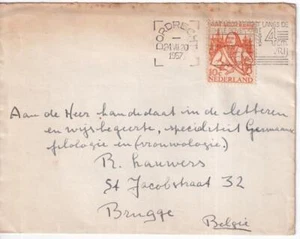 DORDRECHT
1957
10c
NEDERLAND
Aan de Heer kandidaat in de letteren
en wijsbegeerte, specialiteit Germaanse
filologie en (vrouwologie)
R. Lauwers
St Jacobstraat 32
Brugge
België